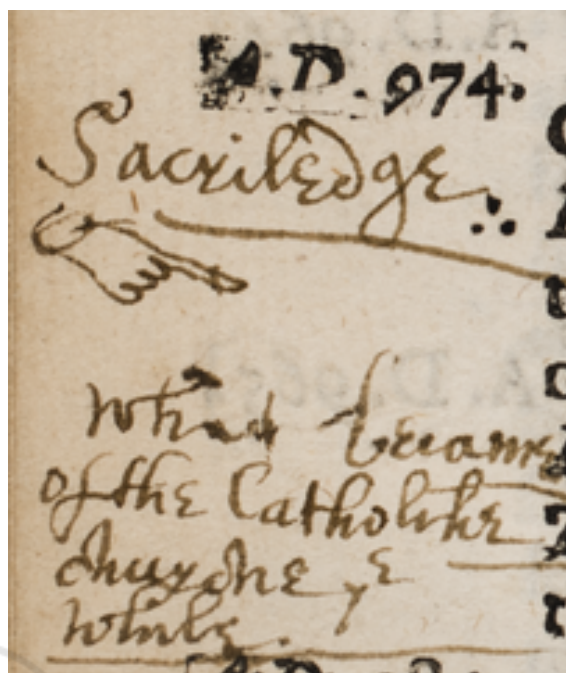 A.D. 974.
Sacriledge
What became
of the Catholike
churche yͤ
while.